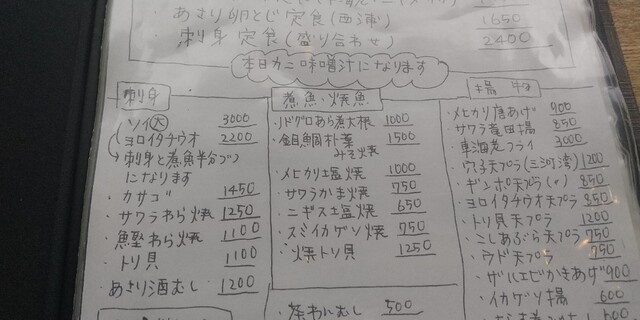 あさり卵とじ定食(西浦) 1650
刺身定食(盛り合わせ) 2400
本日カニ味噌汁になります
刺身
ソイ大 3000
ヨロイタチウオ 2200
刺身と煮魚半分づつ
になります
カサゴ 1450
サワラわら焼 1250
鰹わら焼 1100
トリ貝 1100
あさり酒むし 1200
煮魚・焼魚
・ノドグロあら煮大根 1000
・金目鯛朴葉 1500
みそ焼
・メヒカリ塩焼 1000
・サワラかま焼 750
・ニギス塩焼 650
・スミイカゲソ焼 750
・焼トリ貝 1250
・茶わんむし 500
揚物
・メヒカリ唐あげ 900
・サワラ竜田揚 850
・車海老フライ 3000
・穴子天プラ(三河湾) 1200
・ギンポ天プラ(〃) 850
・ヨロイタチウオ天プラ 850
・トリ貝天プラ 1200
・こしあぶら天プラ 750
・ウド天プラ 750
・ザルエビかきあげ 900
・イカゲソ揚 600